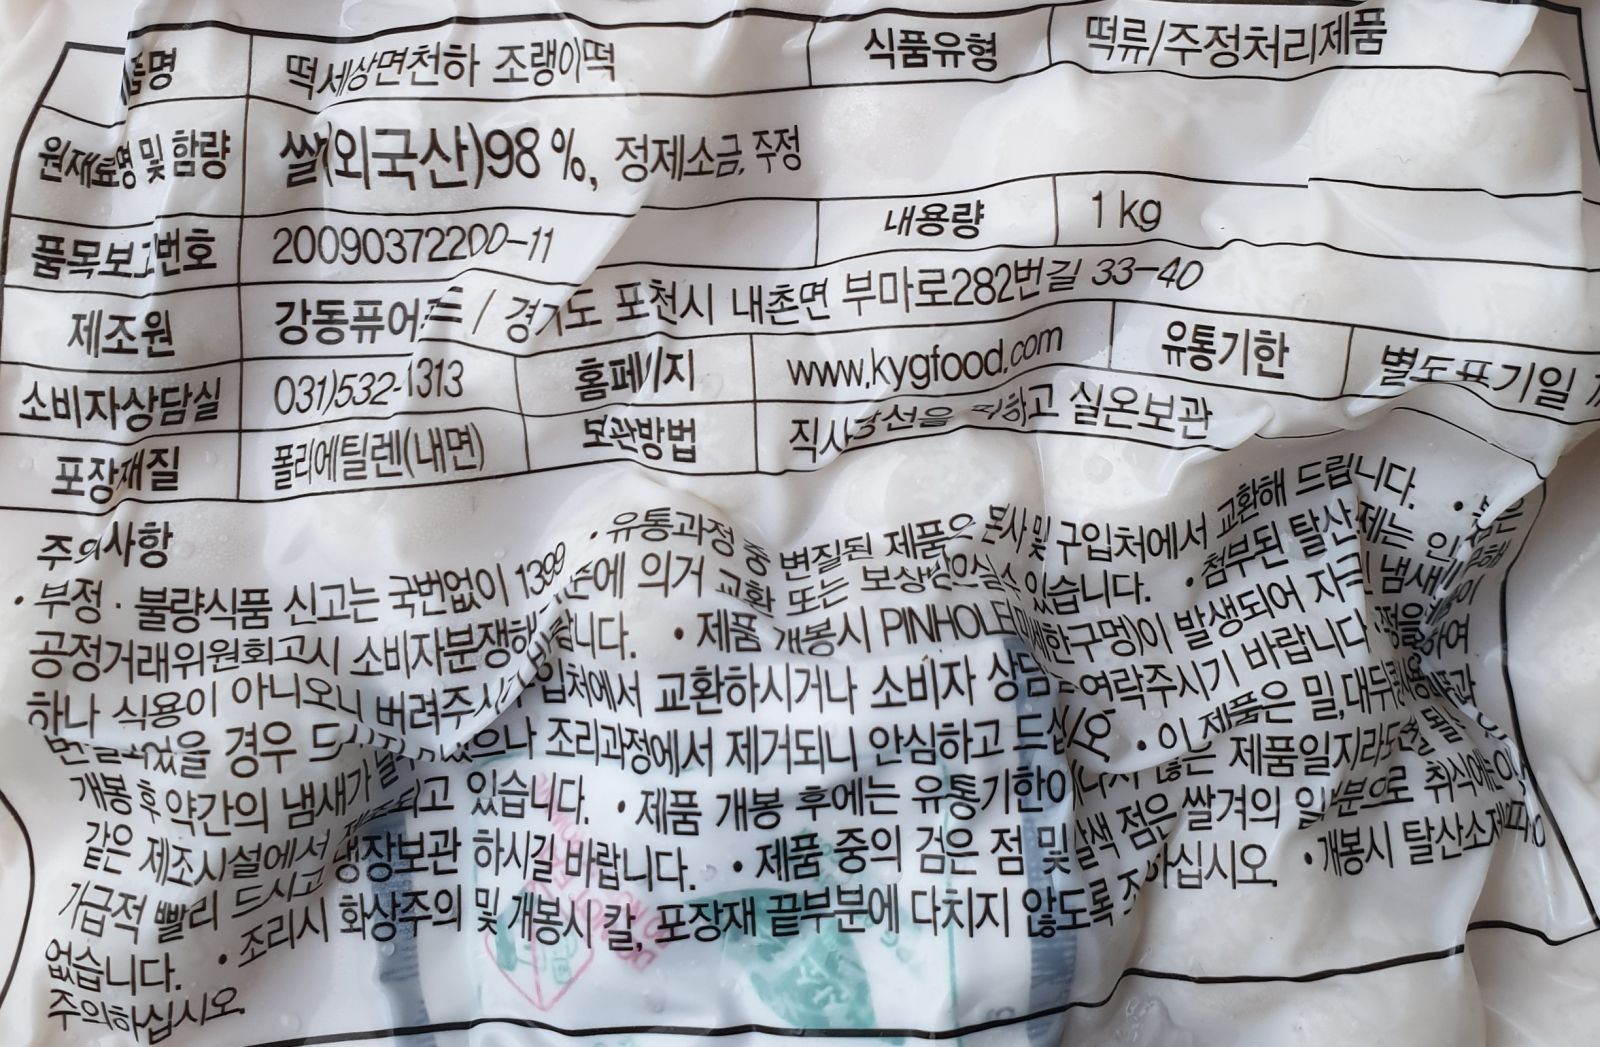 떡세상면천하 조랭이떡 식품유형 떡류/주정처리제품
원재료명 및 함량 쌀(외국산)98 %, 정제소금, 주정
품목보고번호 20090372200-11 내용량 1 kg
제조원 강동퓨어푸드 / 경기도 포천시 내촌면 부마로282번길 33-40
소비자상담실 031)532-1313 홈페이지 www.kygfood.com 유통기한 별도표기일
포장재질 폴리에틸렌(내면) 보관방법 직사광선을 피하고 실온보관
주의사항
• 부정 · 불량식품 신고는 국번없이 1399 • 유통과정 중 변질된 제품은 본사 및 구입처에서 교환해 드립니다. •
공정거래위원회고시 소비자분쟁해 의거 교환 또는 보상받으실 수 있습니다. • 첨부된 탈산 제는 인
하나 식용이 아니오니 버려주시 랍니다. • 제품 개봉시 PINHOLE 한구멍)이 발생되어
을 경우 입처에서 교환하시거나 소비자 상담 연락주시기 바랍니다.
개봉 후 약간의 냄새가 으나 조리과정에서 제거되니 안심하고 드십시오. • 이 제품은 밀, 대두
같은 제조시설에서 제조되고 있습니다. • 제품 개봉 후에는 유통기한이 제품일지라도
가급적 빨리 드시고 냉장보관 하시길 바랍니다. • 제품 중의 검은 점 및 갈색 점은 쌀겨의 일부분으로 취식에는
없습니다. • 조리시 화상주의 및 개봉시 칼, 포장재 끝부분에 다치지 않도록 하십시오. • 개봉시 탈산소제
주의하십시오.